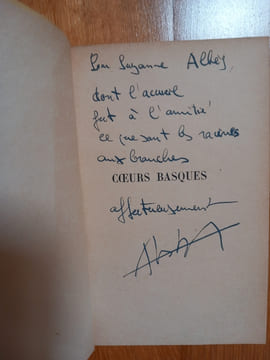 Pour Suzanne Alhey,
dont l'accueil
fut à l'amitié
ce que sont les racines
aux branches
CŒURS BASQUES
affectueusement